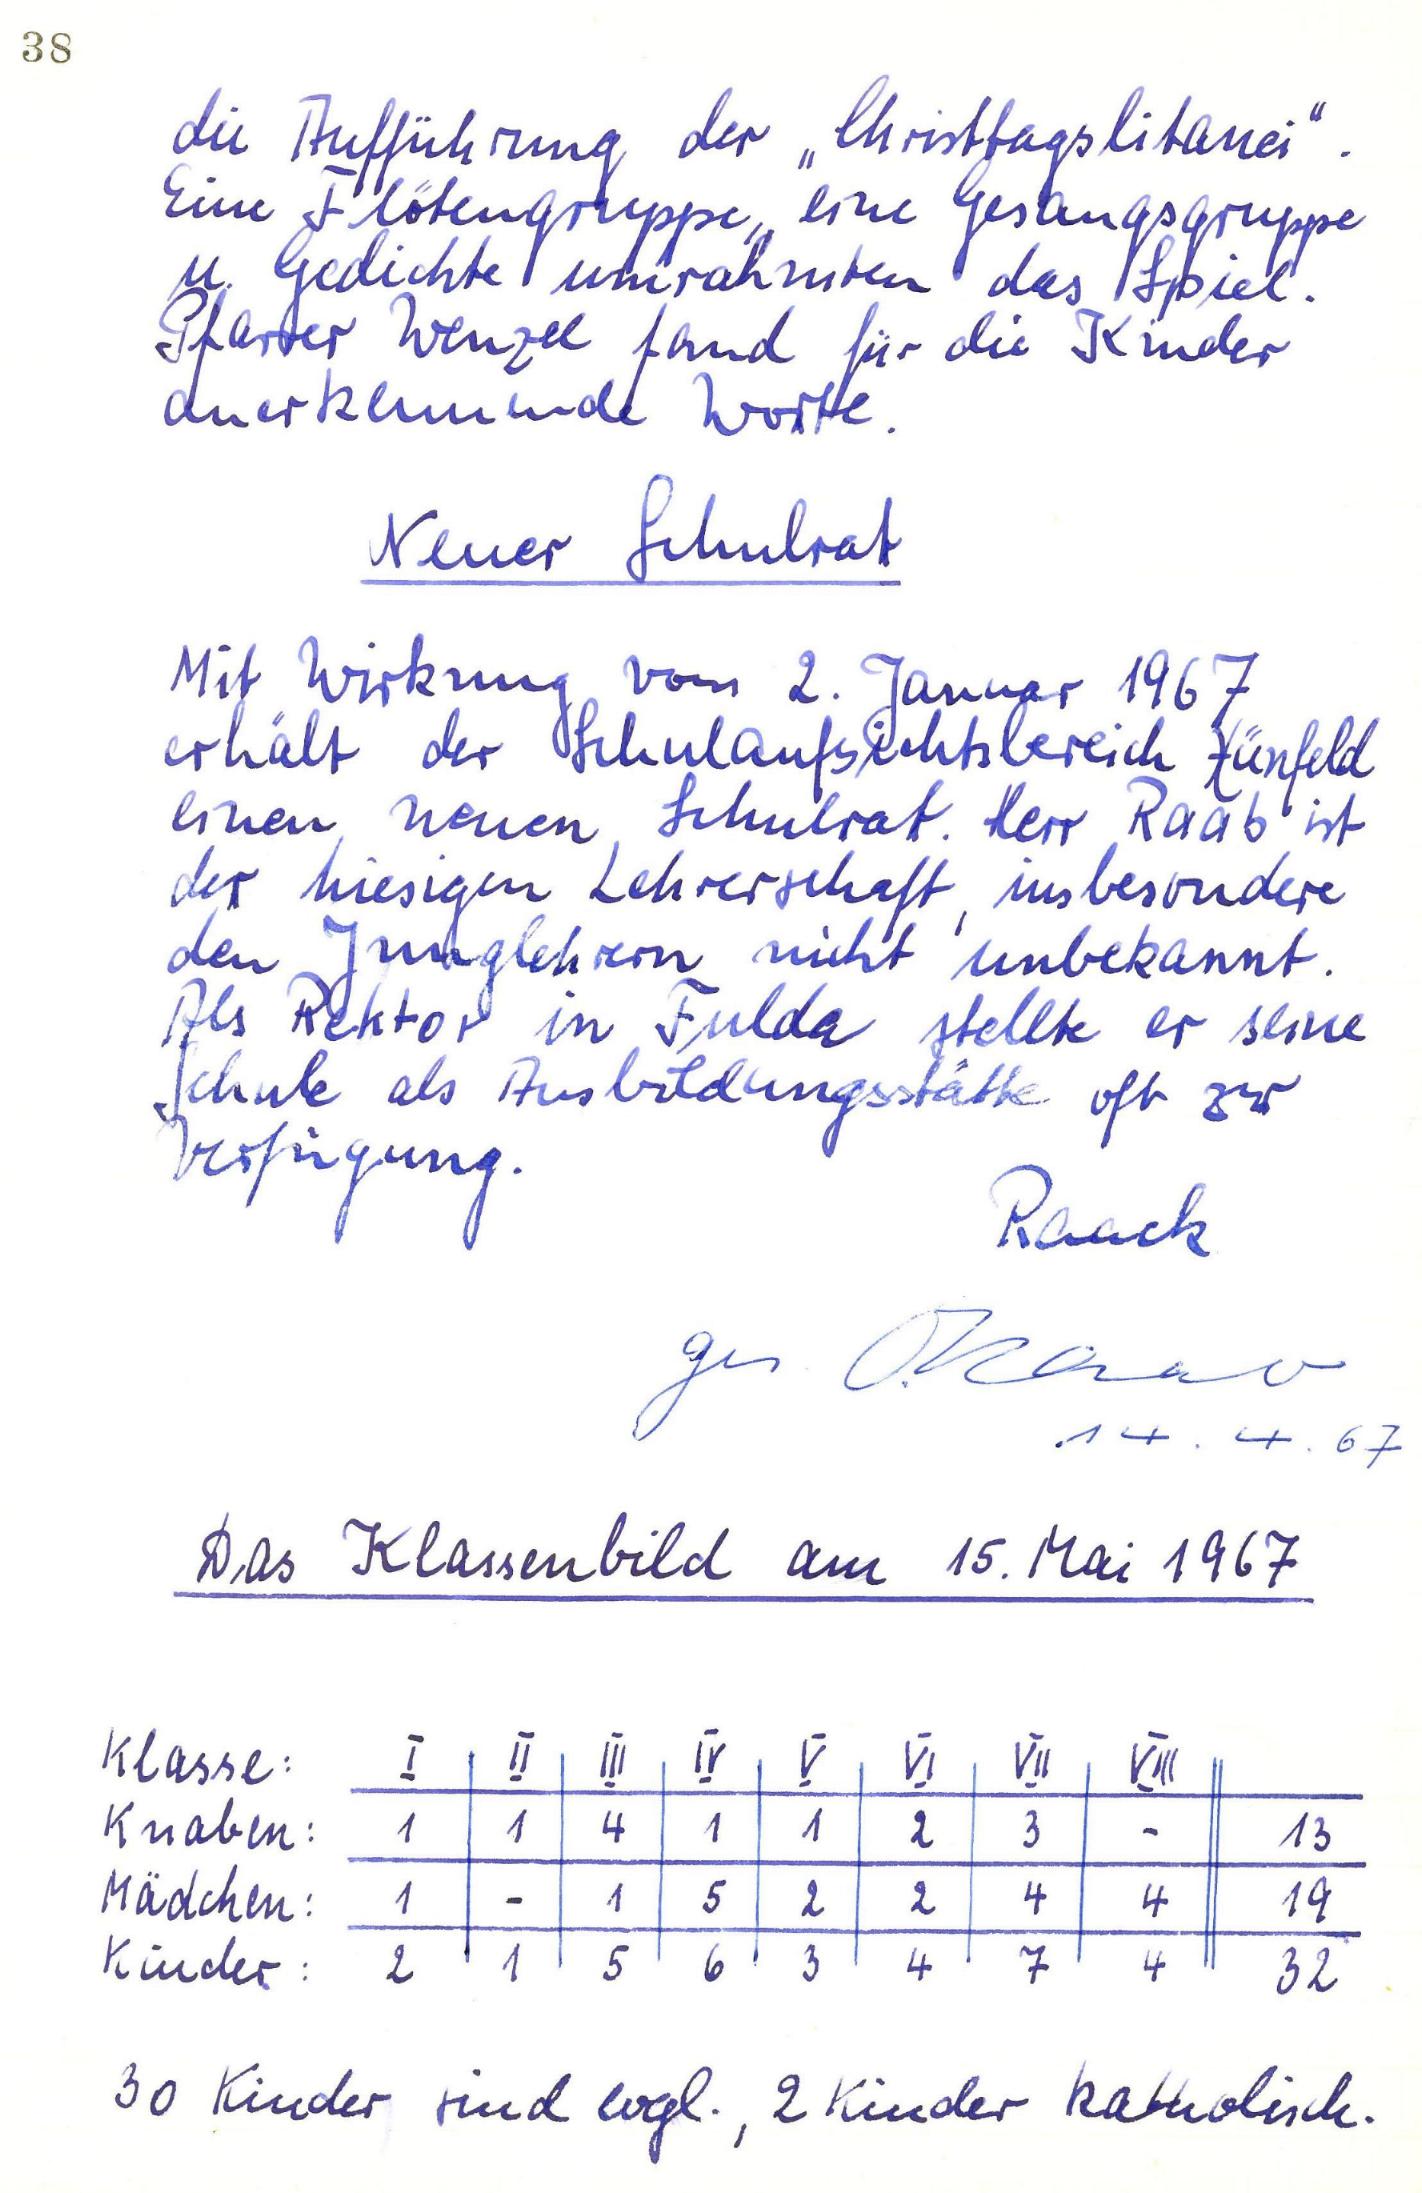 38
die Aufführung der „Christtagslitanei".
Eine Flötengruppe, eine Gesangsgruppe
u. Gedichte umrahmten das Spiel.
Pfarrer Wenzel fand für die Kinder
anerkennende Worte.
Neuer Schulrat
Mit Wirkung vom 2. Januar 1967
erhält der Schulaufsichtsbereich Hünfeld
einen neuen Schulrat. Herr Raab ist
der hiesigen Lehrerschaft, insbesondere
den Junglehrern nicht unbekannt.
Als Rektor in Fulda stellte er seine
Schule als Ausbildungsstätte oft zur
Verfügung.
Raack
ges.
14.4.67
Das Klassenbild am 15. Mai 1967
Klasse: I II III IV V VI VII VIII
Knaben: 1 1 4 1 1 2 3 - 13
Mädchen: 1 - 1 5 2 2 4 4 19
Kinder: 2 1 5 6 3 4 7 4 32
30 Kinder sind evgl., 2 Kinder katholisch.